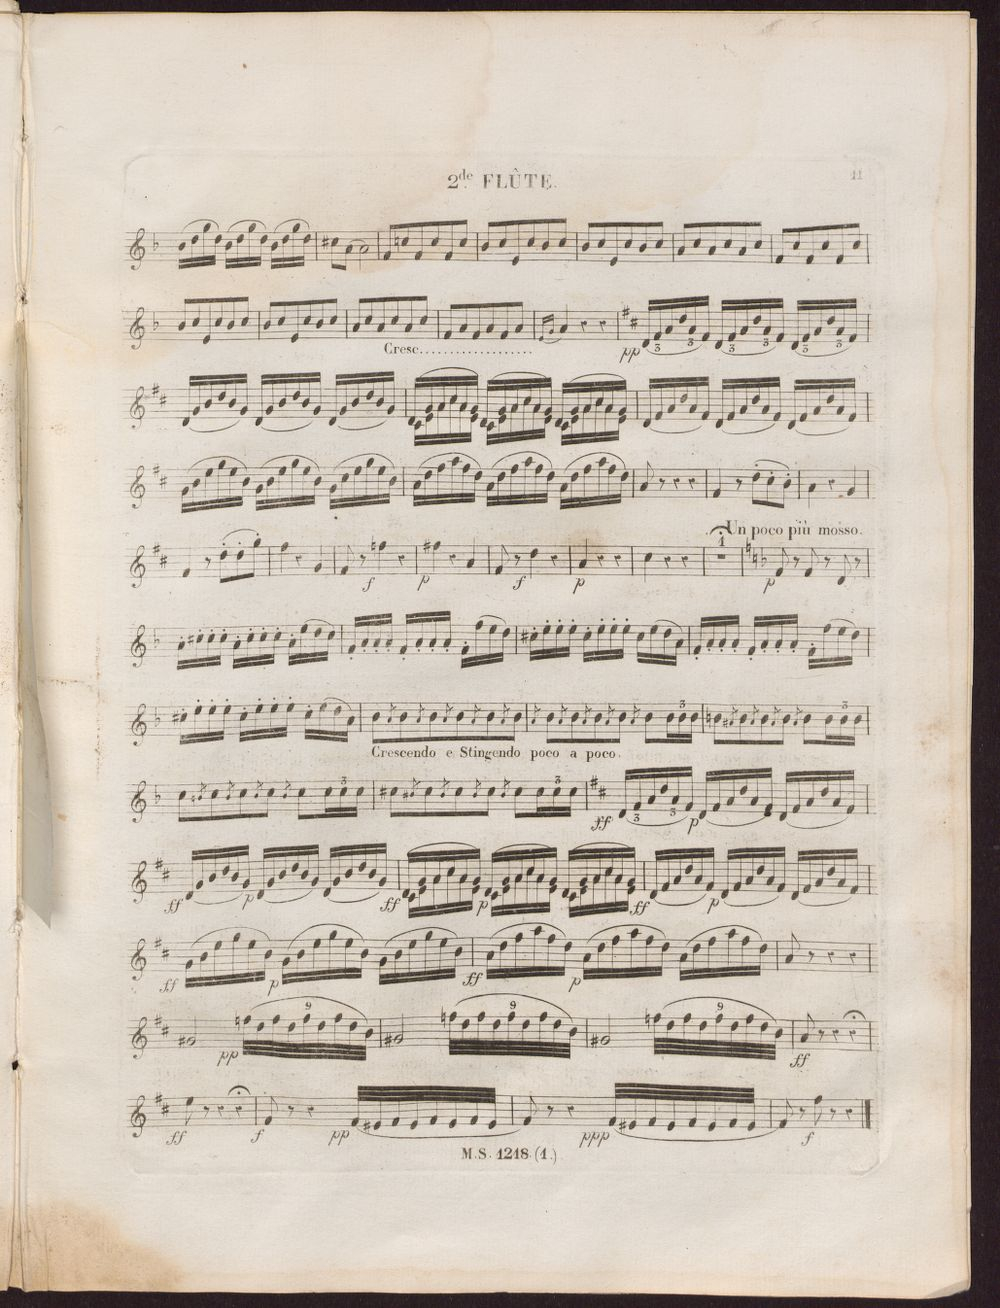 2.de FLÛTE.
11
Cresc....................
pp 3 3 3 3 3 3
Un poco più mosso.
1
f p f p p
3 3
Crescendo e Stingendo poco a poco.
3 3
ff 3 3 p
ff p ff p ff p
ff p ff p
9 9 9
pp ff
ff f pp ppp f
M.S. 1218. (1.)